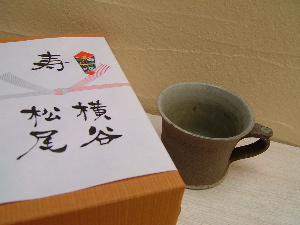 寿
横谷
松尾